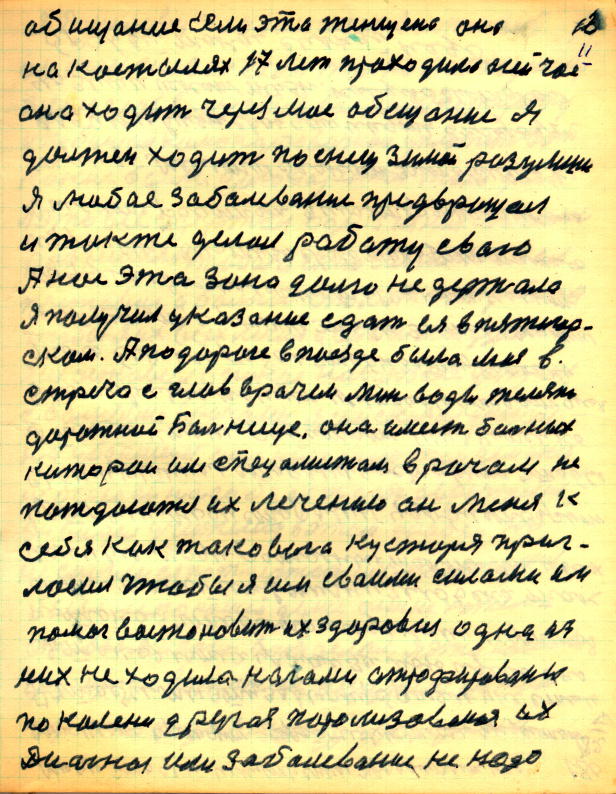 обищание если эта женщена она
на костылях 17 лет проходила сейчас
она ходит через мое обещание я
должен ходит по снегу зимой
я любое заболевание предвращал
и также делал работу сваю
А мое эта зона долго не держала
Я получил указание сдат ея в пятигор-
ском. А по дороге в поезде была моя в.
стреча с глав врачем мин воды
дорожной Балнице, она имеет балных
каторои им специалистам врачам не
их лечению он меня к
себя как таковога кустаря приг-
ласил чтобы я им сваими силами им
помог востановит их здаровия одна из
них не ходила нагами атрофированы
по калени другая поролизованая их
Диагноз или заболевание не надо